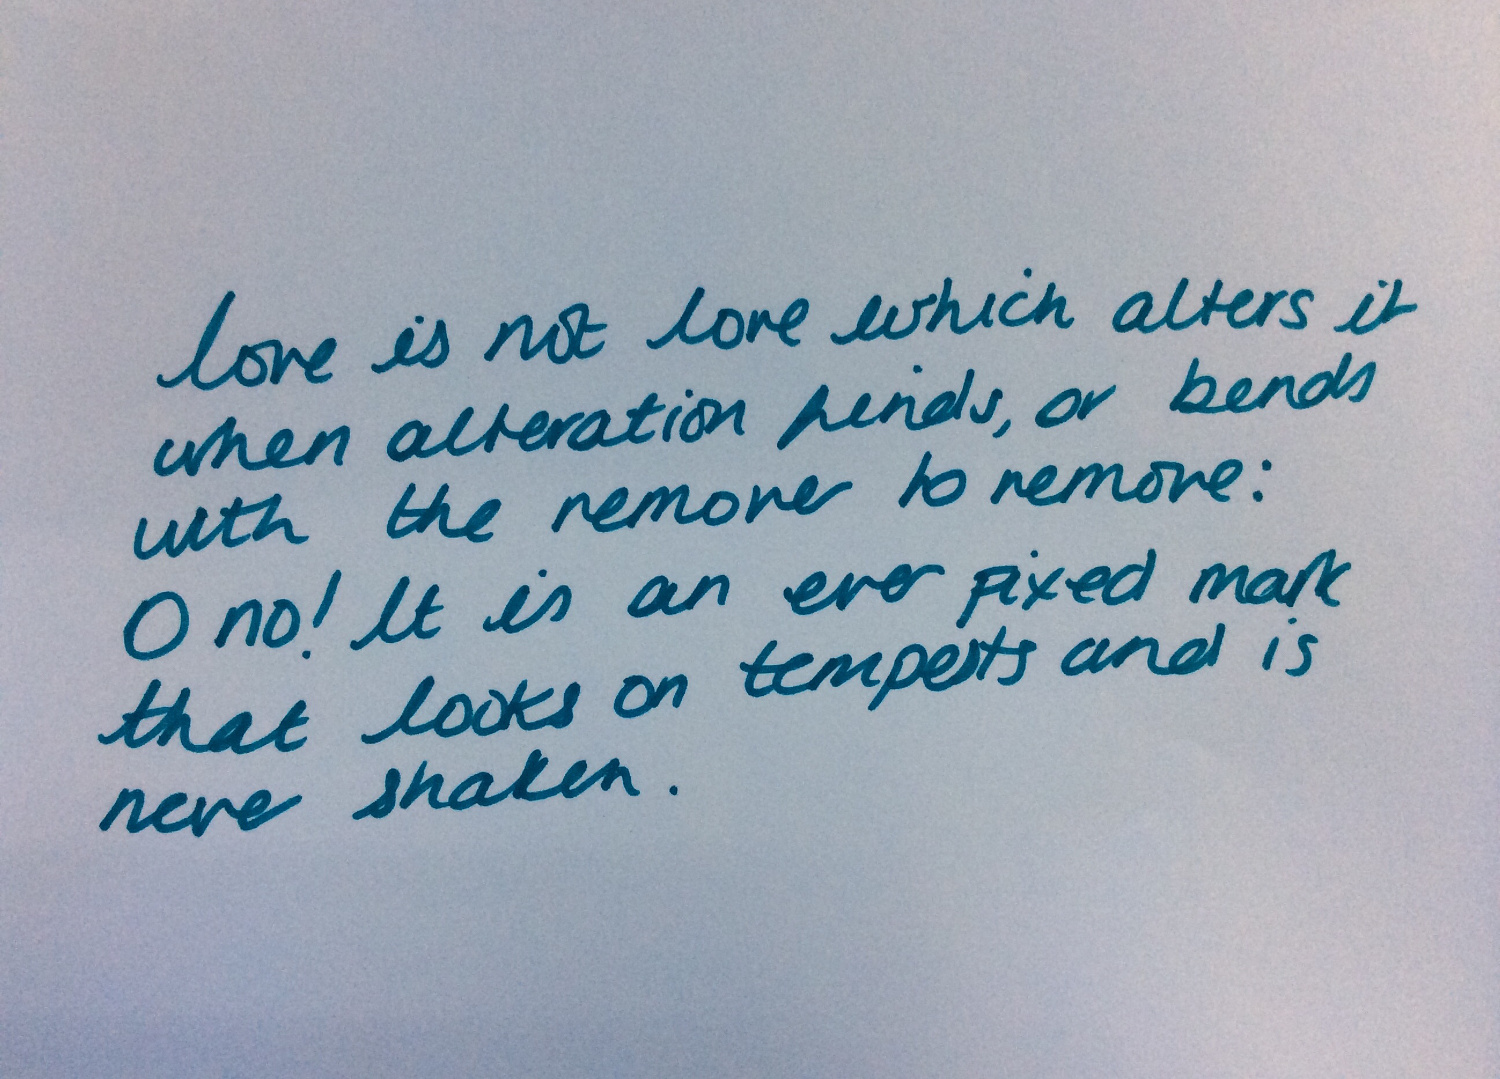 love is not love which alters it
when alteration finds, or bends
with the remover to remove:
O no! It is an ever fixed mark
that looks on tempests and is
never shaken.